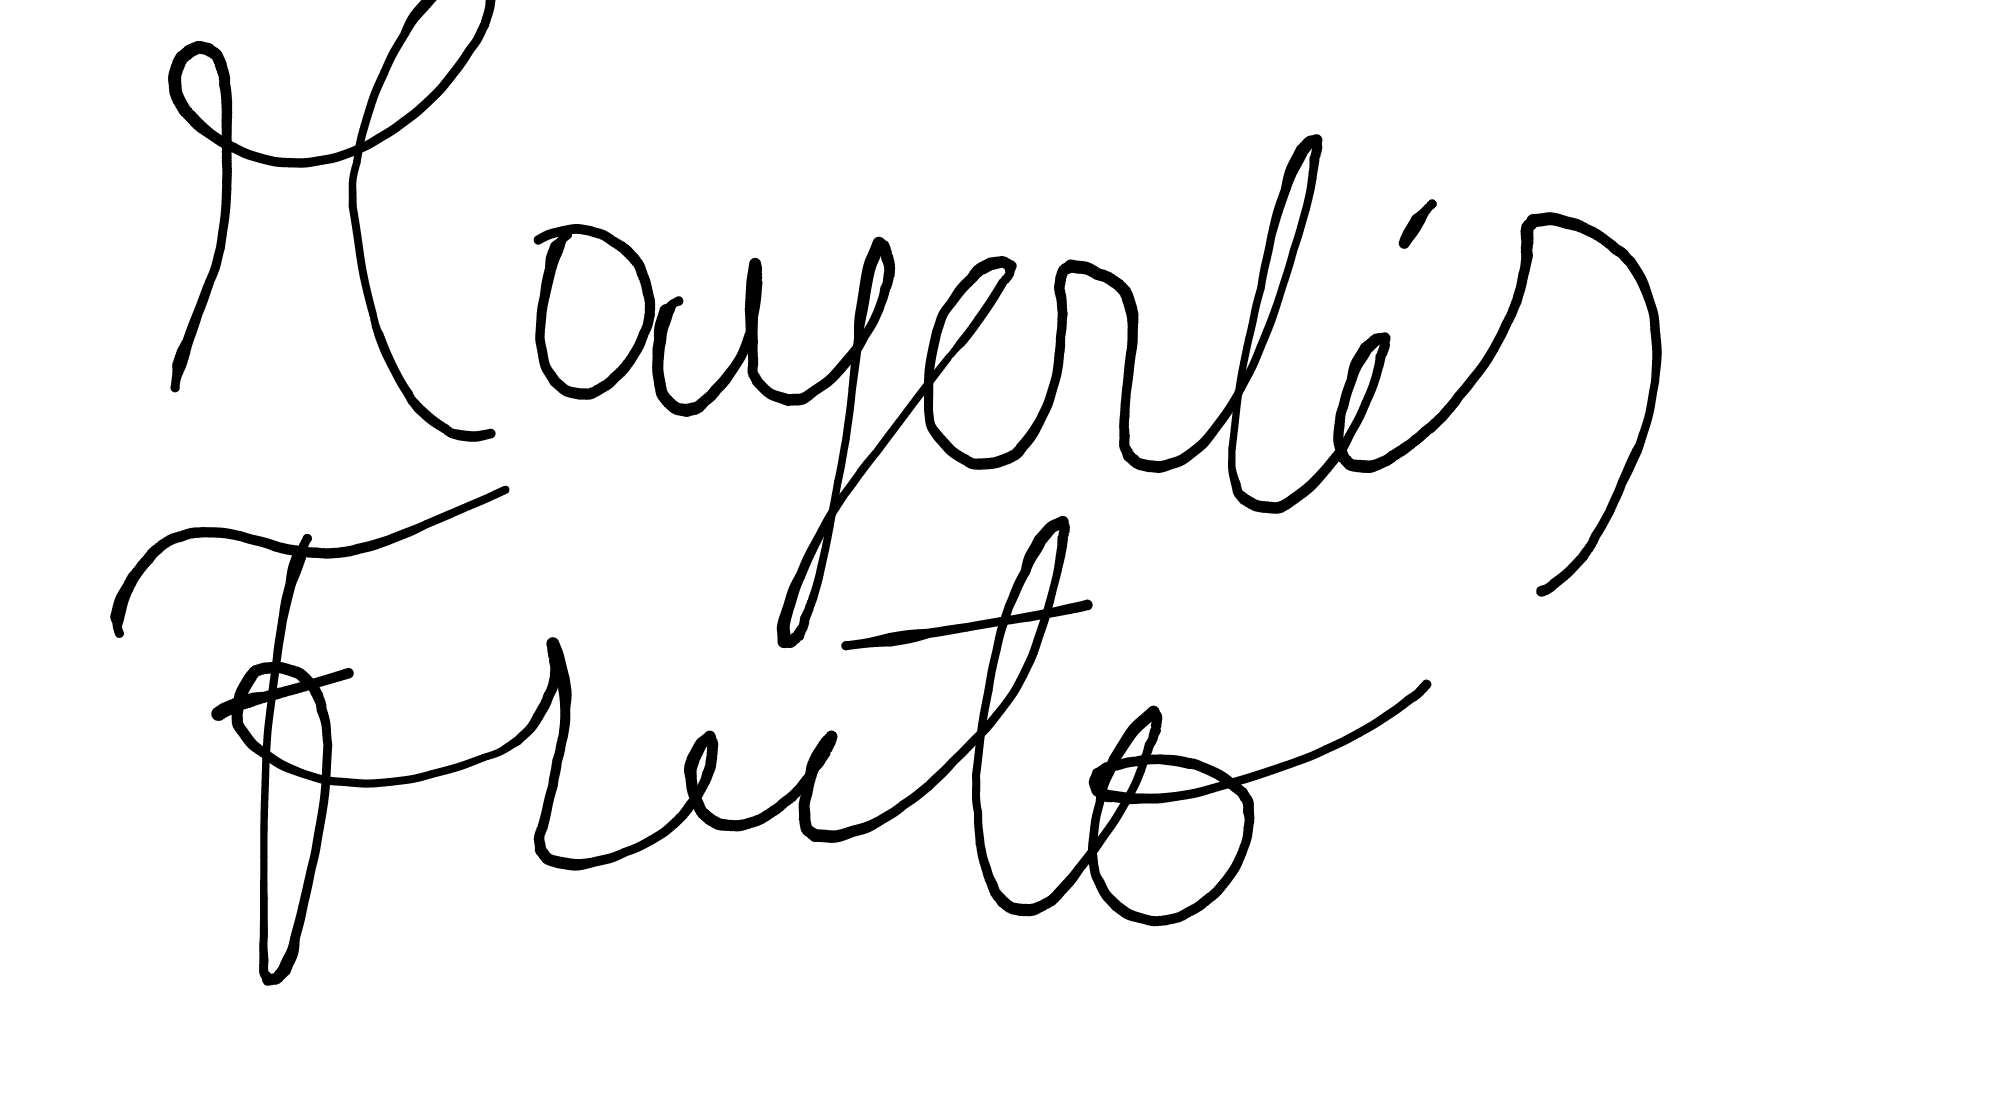 Mayerlis
Fruto